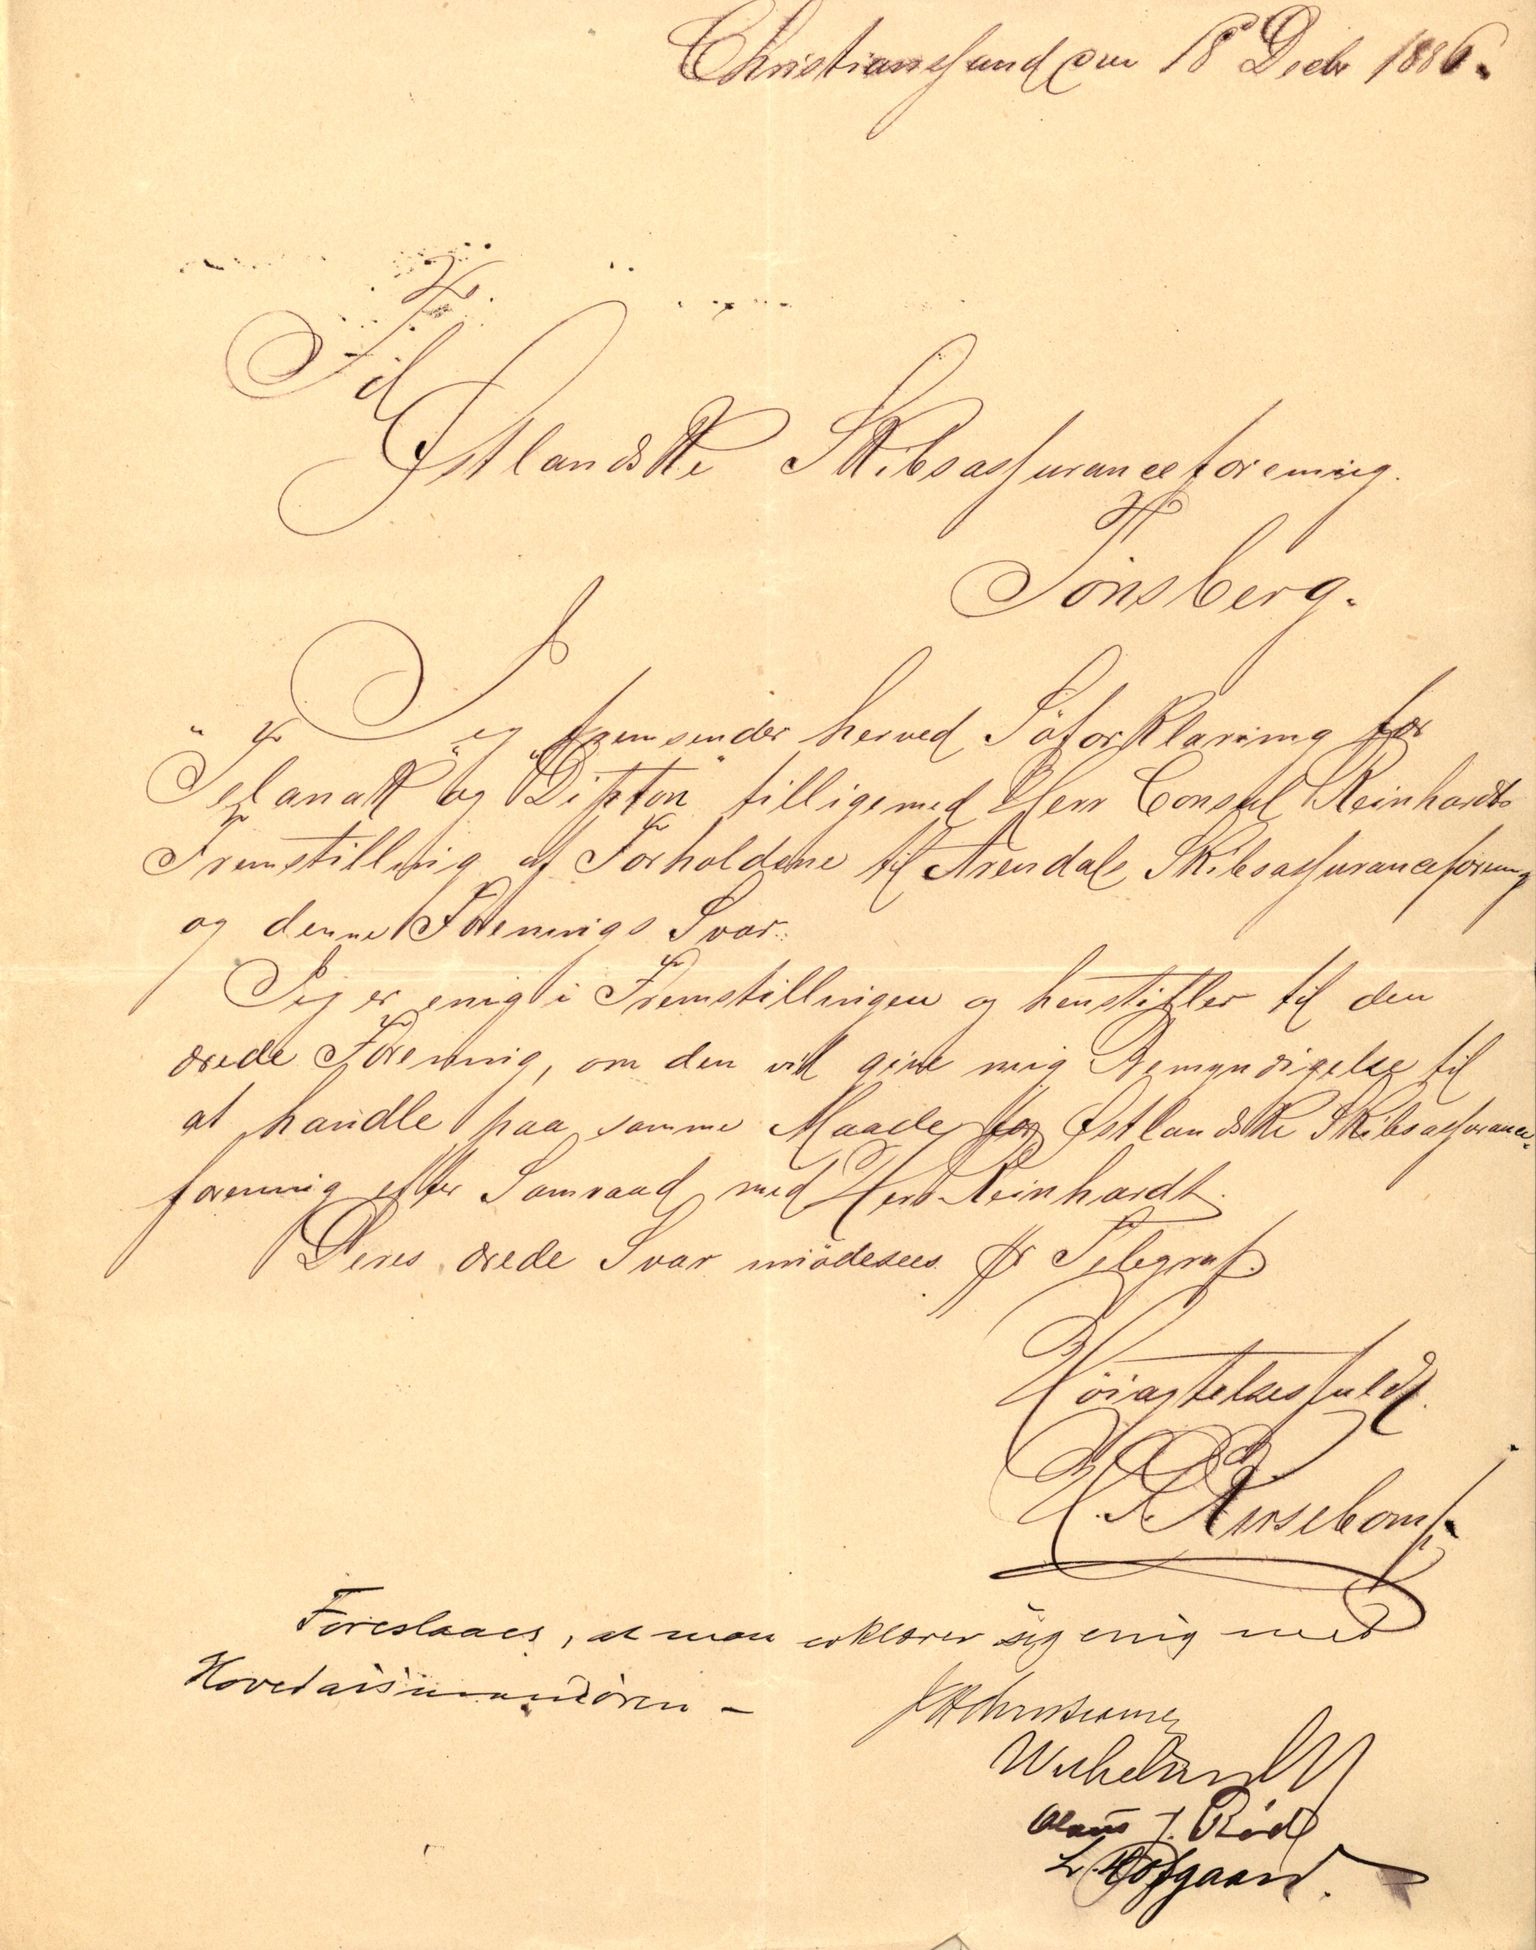 Christianssund den 18 Decbr 1886.
Til
Østlandske Skibsassuranceforening.
Tönsberg.
Jeg fremsender herved Söforklaring for
"Ispolank" og "Dipton" tilligemed Herr Consul Reinhardts
Fremstilling af Forholdene til Arendals Skibsassuranceforening
og denne Forenings Svar.
Jeg er enig i Fremstillingen og henstiller til den
ærede Forening, om den vil give mig Bemyndigelse til
at handle paa samme Maade for Østlandske Skibsassurance-
forening efter Samraad med Herr Reinhardt.
Deres ærede Svar imödesees pr Telegraf.
Höiagtelsesfuldt
Foreslaaes, at man erklærer sig enig med
Hovedassurandören -
Olaus J. Rød
L. Hofgaard.